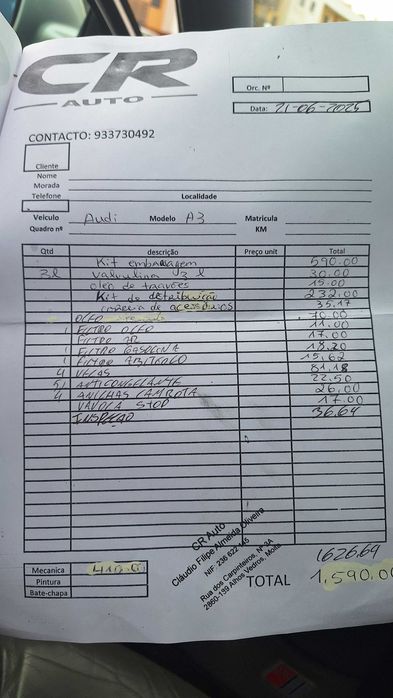 CR
AUTO
Orc. Nº
Data: 21-06-2025
CONTACTO: 933730492
Cliente
Nome
Morada
Telefone Localidade
Veiculo Audi Modelo A3 Matricula
Quadro nº KM
Qtd descrição Preço unit Total
Kit embraiagem 590.00
3l valvulina 3 l 30.00
oleo de travões 15.00
Kit de distribuição 232,00
correia de acessorios 35.17
OLEO 70.00
1 FILTRO OLEO 11.00
FILTRO AR 17.00
1 FILTRO GASOLINA 18.20
1 FILTRO HABITACULO 15,62
4 VELAS 81.18
5l ANTICONGELANTE 22.50
4 ANILHAS CAMBOTA 26,00
STOP 17.00
INSPEÇÃO 36,64
1626.69
Mecanica 410.00
Pintura
Bate-chapa
CR Auto
Cláudio Filipe Almeida Oliveira
Rua dos Carpinteiros, Nº 3A
2860-139 Alhos Vedros, Moita
TOTAL 1,590.00